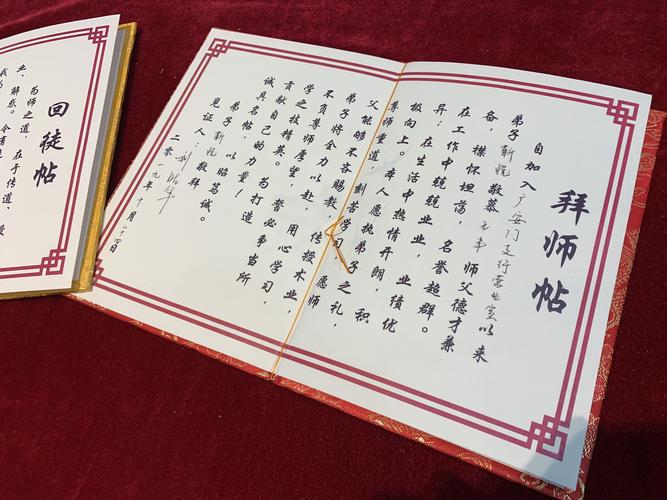 拜师帖
自加入广安门支行营业室以来
弟子靳悦敬慕师父德才兼
备,襟怀坦荡,名誉超群。
在工作中兢兢业业,业绩优
异,在生活中热情开朗,积
极向上。本人愿执弟子之礼,
尊师重道,刻苦学习,愿师
父能够不吝赐教,传授术业,
弟子将全力以赴,用心学习,
不负尊师厚望,誓必事当所
学之技精英。为打造
贡献自己的力量!
诚具名帖,以昭笃诚。
弟子:靳悦敬拜
见证人:刘
二零一九年十月二十四日
回徒帖
为师之道,在于传道、授
业、解惑。今有
我为